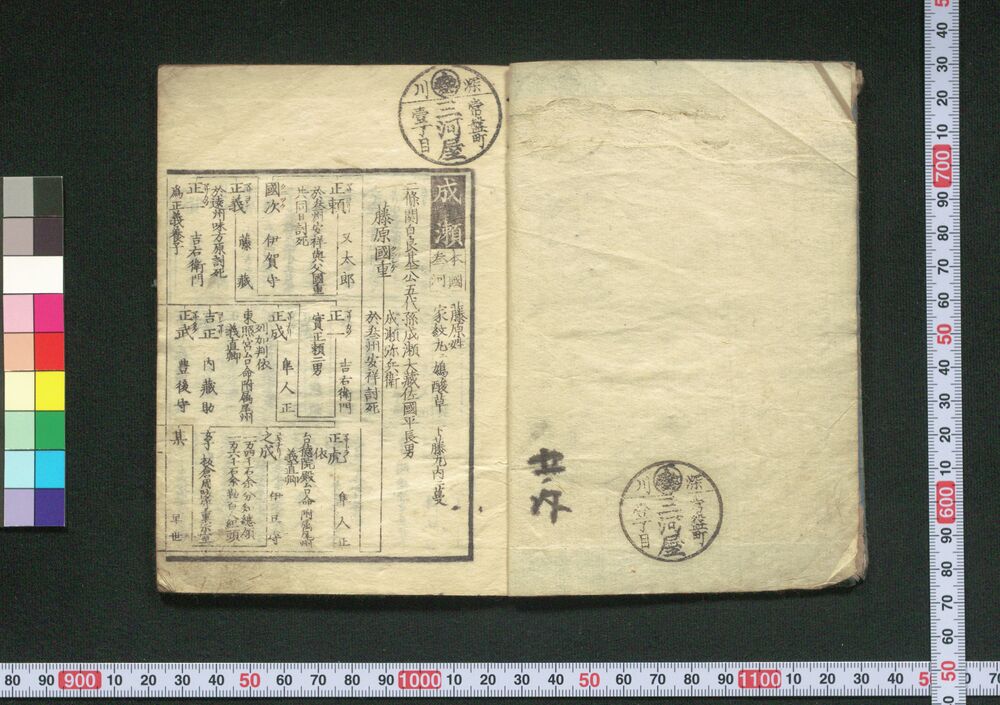 深川
常盤町
三河屋
壹丁目
廿ノ内
深川
常盤町
三河屋
壹丁目
成瀬
本國
叁河
藤原姓
家紋丸ニ鳩酸草
下藤丸内ニ蔓
二條関白良基公五代孫成瀬大藏佐國平長男
藤原國重
成瀬弥兵衛
於叁州安祥討死
正頼
又太郎
於叁州安祥與父國重
共同日討死
正一
吉右衛門
實正頼二男
正虎
隼人正
台徳院殿台命附属尾州
依
義直卿
國次
伊賀守
正成
隼人正
列加判依
東照宮台命附属尾州
義直卿
之成
伊豆守
正義
藤藏
於遠州味方原討死
吉正
内藏助
女子
正
吉右衛門
為正義養子
正武
豊後守
某
早世